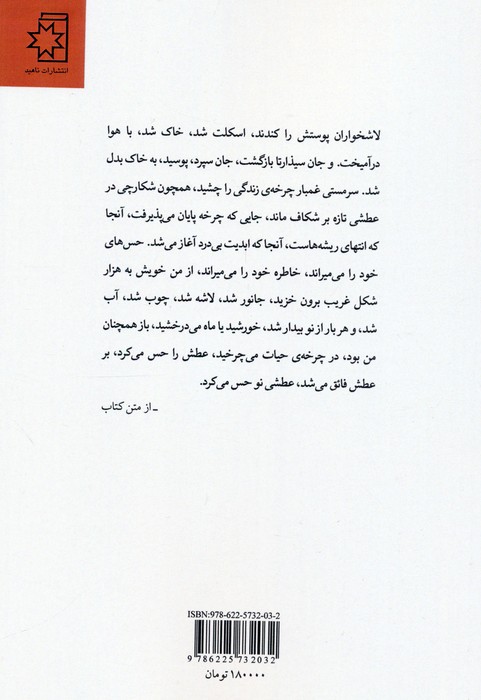 انتشارات ناهید
لاشخواران پوستش را کندند، اسکلت شد، خاک شد، با هوا
درآمیخت. و جان سیذارتا بازگشت، جان سپرد، پوسید، به خاک بدل
شد. سرمستی غمبار چرخه‌ی زندگی را چشید، همچون شکارچی در
عطشی تازه بر شکاف ماند، جایی که چرخه پایان می‌پذیرفت، آنجا
که انتهای ریشه‌هاست، آنجا که ابدیت بی‌درد آغاز می‌شد. حس‌های
خود را می‌میراند، خاطره خود را می‌میراند، از من خویش به هزار
شکل غریب برون خزید، جانور شد، لاشه شد، چوب شد، آب
شد، و هر بار از نو بیدار شد، خورشید یا ماه می‌درخشید، باز همچنان
من بود، در چرخه‌ی حیات می‌چرخید، عطش را حس می‌کرد، بر
عطش فائق می‌شد، عطشی نو حس می‌کرد.
ـ از متن کتاب
ISBN:978-622-5732-03-2
9 786225 732032
۱۸۰۰۰۰ تومان